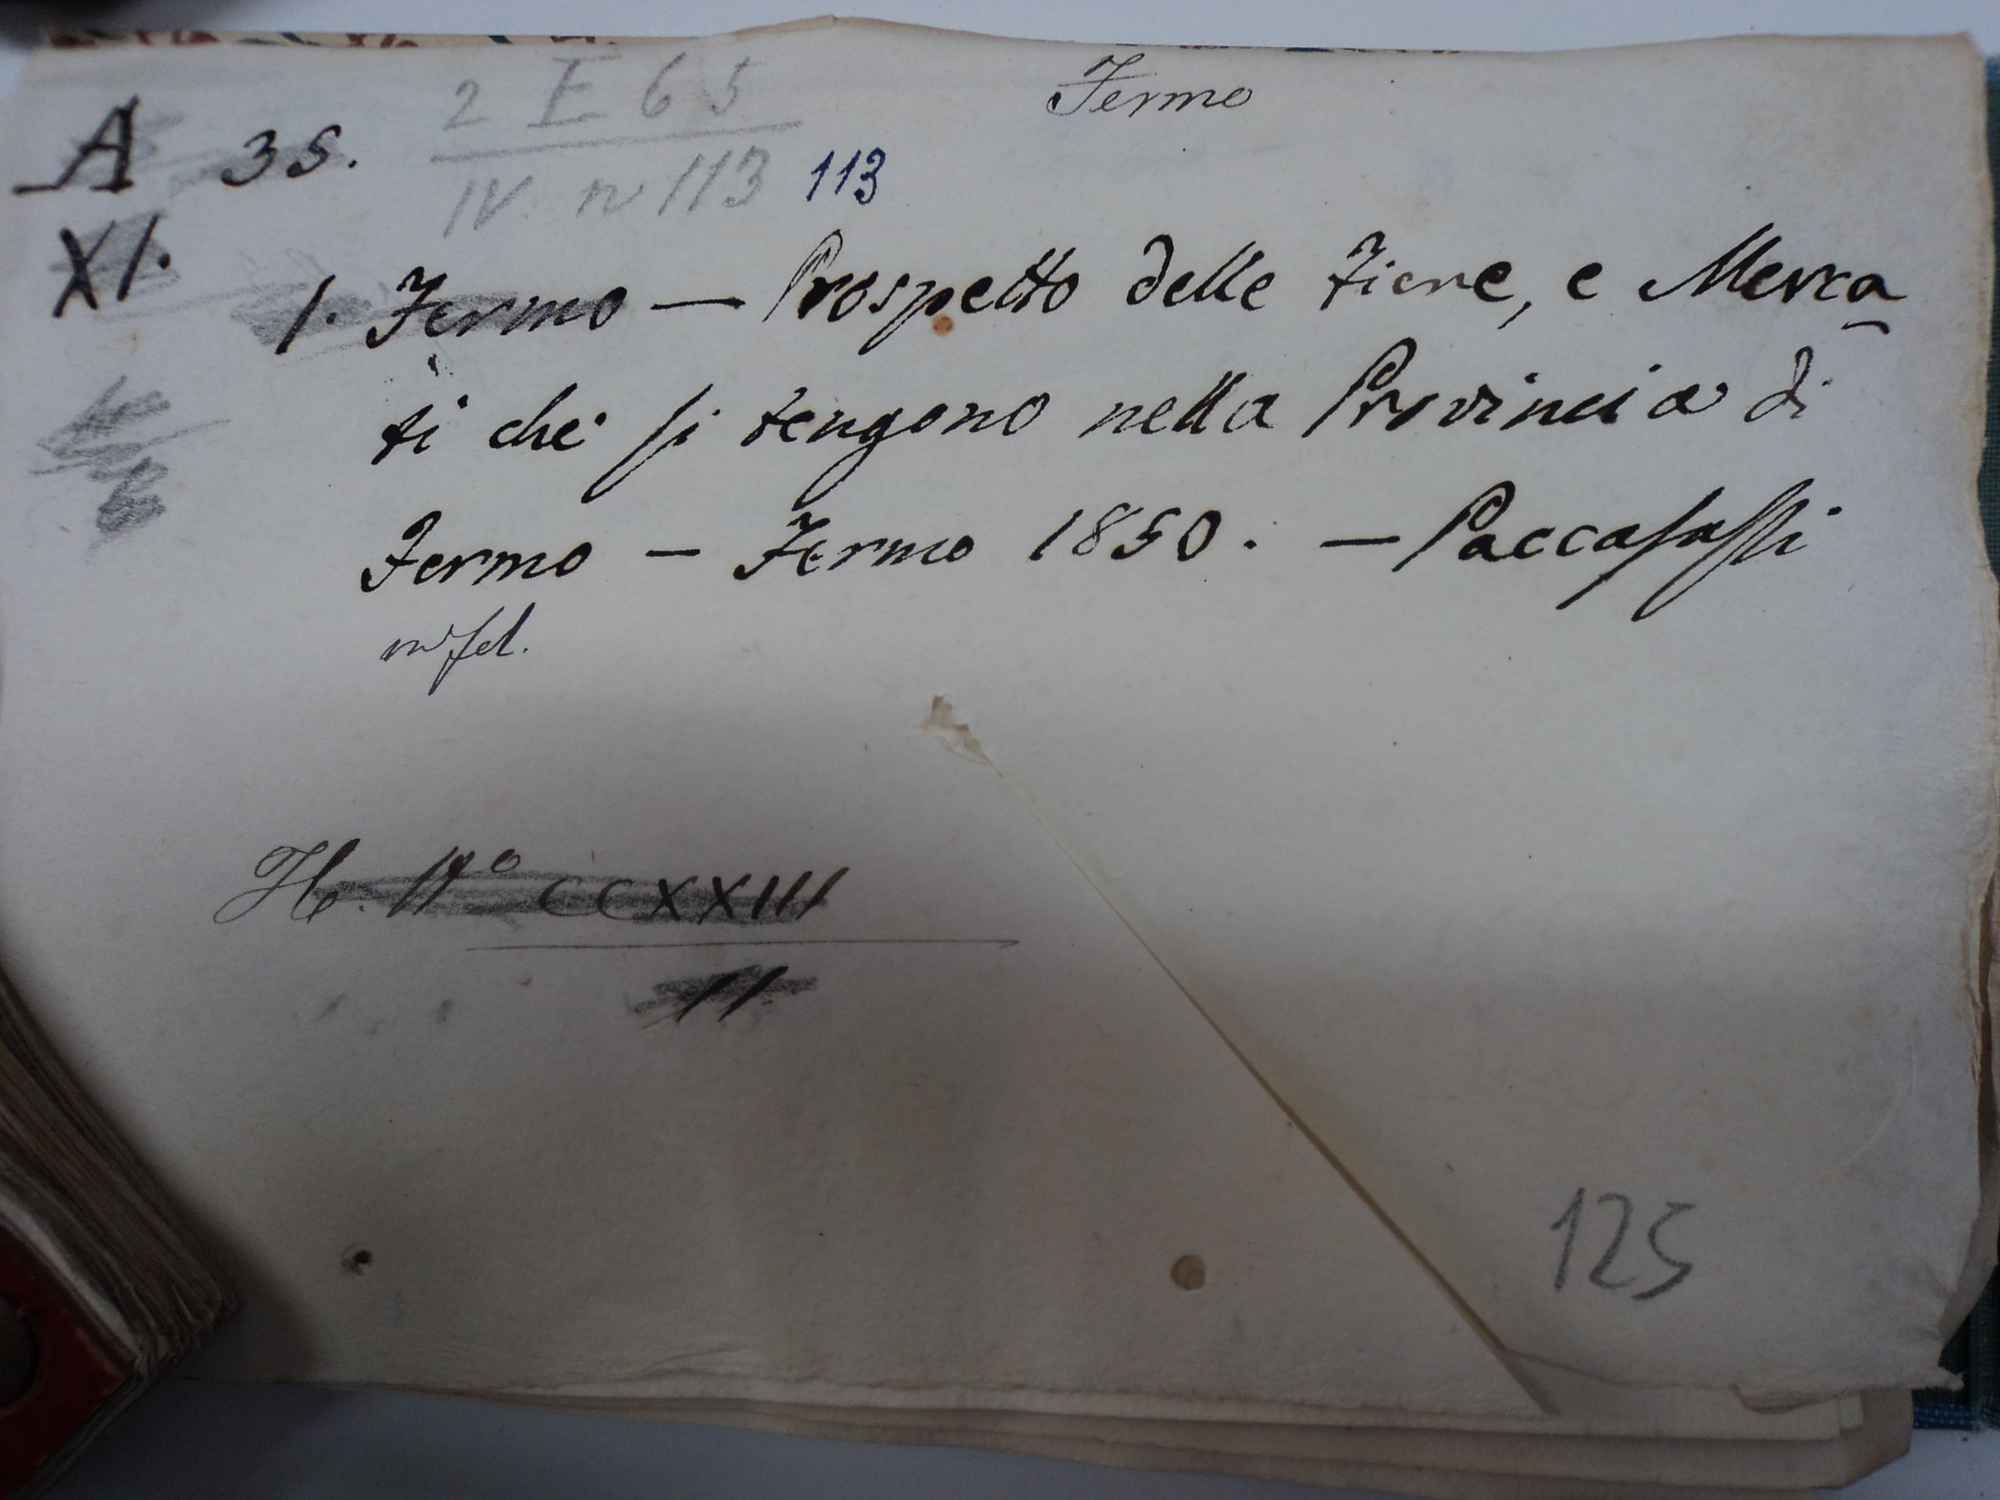 Fermo
2 E 65
A 35.
IV n 113 113
XI.
1. Fermo — Prospetto delle Fiere, e Merca
ti che si tengono nella Provincia di
Fermo — Fermo 1850. — Paccasassi
in fol.
N° CCXXIII
11.
125